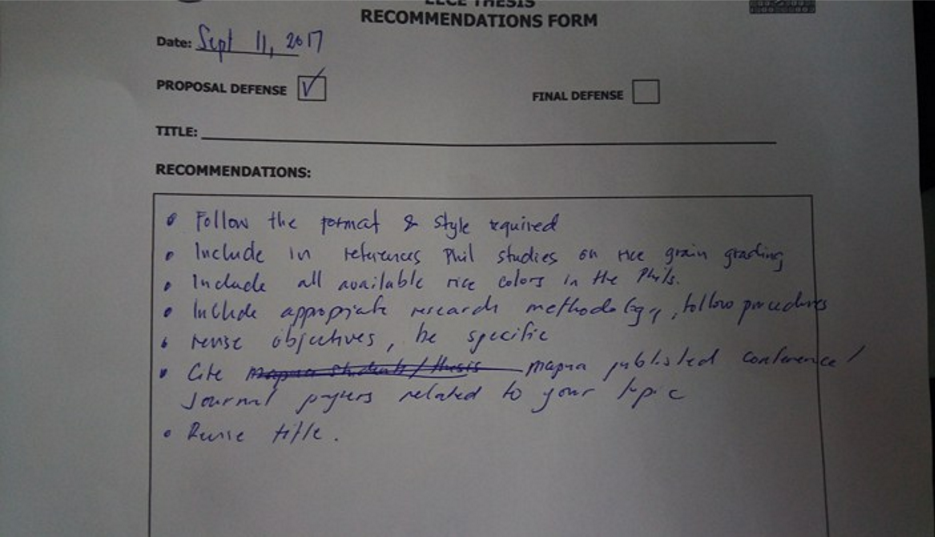 EECE THESIS
RECOMMENDATIONS FORM
Date: Sept 11, 2017
PROPOSAL DEFENSE ✓
FINAL DEFENSE
TITLE:
RECOMMENDATIONS:
• Follow the format & style required
• Include in references Phil studies on rice grain grading
• Include all available rice colors in the Phils.
• Include appropriate research methodology, follow procedures
• revise objectives, be specific
• Cite mapua published conference/
Journal papers related to your topic
• Revise title.